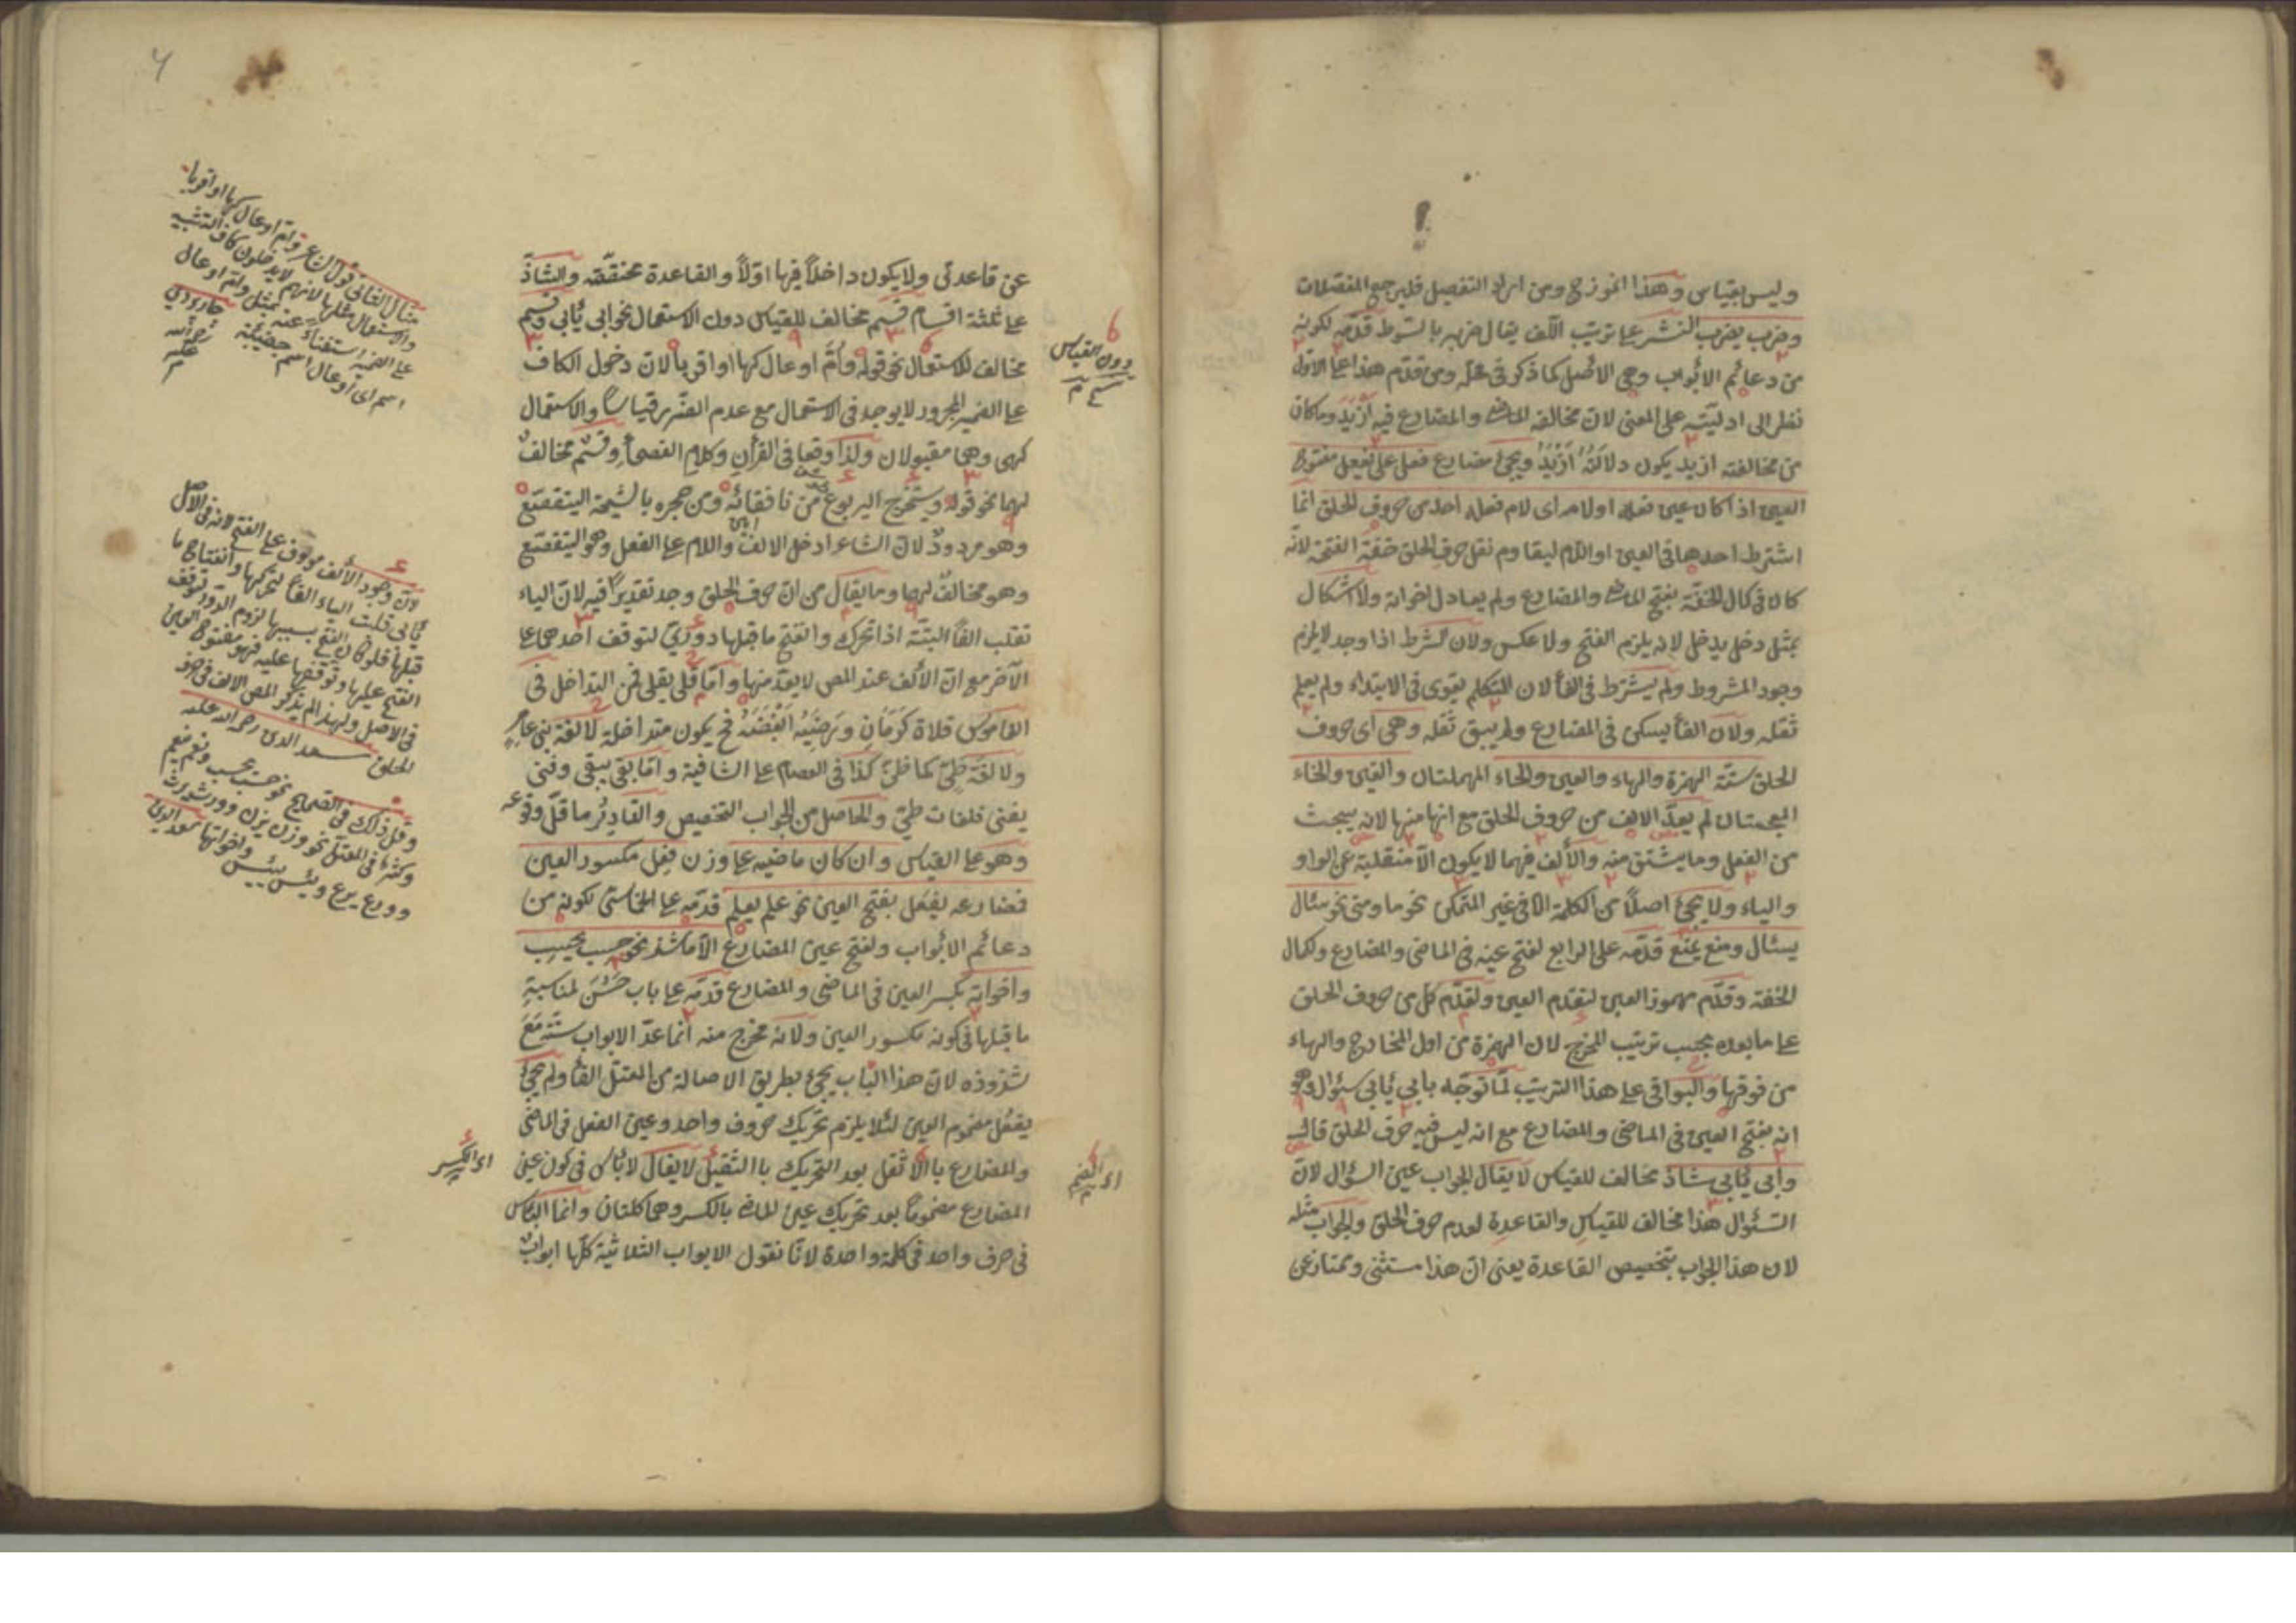 وليس بقياس وهذا انموزج ومن اراد التفصيل فليرجع المفصلات
وضرب يضرب النشر على ترتيب اللف يقال ضربه بالسوط قدّمه لكونه
من دعائم الابواب وهى الاصل كما ذكر فى محله ومن قدّم هذا على الاول
نظر الى ادليته على المعنى لان مخالفة الماضى والمضارع فيه ازيد وما كان
من مخالفته ازيد يكون دلالته ازيد ويجئ مضارع فعل على يفعل مفتوح
العين اذا كان عين فعله او لامه اى لام فعله احد من حروف الحلق انما
اشترط احدهما فى العين او اللام ليقاوم ثقل حرف الحلق خفة الفتحة لانه
كان فى كمال الخفة بفتح الماضى والمضارع ولم يعادل اخواته ولا اشكال
بمثل دخل يدخل لانه يلزم الفتح ولا عكس ولان الشرط اذا وجد لا يلزم
وجود المشروط ولم يشترط فى الفاء لان المتكلم يقوى فى الابتداء ولم يعلم
ثقله ولان الفاء يسكن فى المضارع ولم يبق ثقله وهى اى حروف
الحلق ستة الهمزة والهاء والعين والحاء المهملتان والغين والخاء
المعجمتان لم يعدّ الالف من حروف الحلق مع انها منها لانه يبحث
من الفعل وما يشتق منه والألف فيهما لا يكون الا منقلبة عن الواو
والياء ولا يجئ اصلاً من الكلمة الا فى غير المتمكن نحو ما ومتى نحو سئال
يسئال ومنع يمنع قدّمه على الرابع لفتح عينه فى الماضى والمضارع ولكمال
الخفة وقدّم مهموز العين لتقدم العين ولتقدّم كل من حروف الحلق
على ما بعده بحسب ترتيب المخرج لان الهمزة من اول المخارج والهاء
من فوقها والبواقى على هذا الترتيب لمّا توجّه بابى يأبى سئوال وهو
انه بفتح العين فى الماضى والمضارع مع انه ليس فيه حرف الحلق قال
وأبى يأبى شاذ مخالف للقياس لا يقال الجواب عين السؤال لانّ
السئوال هذا مخالف للقياس والقاعدة لعدم حرف الحلق والجواب مثله
لان هذا الجواب بتخصيص القاعدة يعنى انّ هذا مستثنى وممتاز عن
عن قاعدتى ولا يكون داخلاً فيها اوّلاً والقاعدة محققة والشاذّ
على ثلثة اقسام قسم مخالف للقياس دون الاستعمال نحو ابى يأبى وقسم
مخالف للاستعمال نحو قوله وأم اوعال كها او اقربا لان دخول الكاف
على الضمير المجرور لا يوجد فى الاستعمال مع عدم قياساً والاستعمال
كهى وهى مقبولان ولذا وقعا فى القرأن وكلام الفصحأ وقسم مخالف
لهما نحو قوله ويستخرج اليربوع من نافقائه ومن جحره بالشيحة اليتقصّع
وهو مردود لان الشاعر ادخل الالف واللام على الفعل وهو اليتقصّع
وهو مخالف لهما وما يقال من ان حرف الحلق وجد تقديراً فيه لان الياء
تقلب الفاً البتة اذا تحرك وانفتح ما قبلها دورىّ لتوقف احدهما على
الآخر مع ان الألف عند المص لا يعدّ منها وامّا قلى يقلى فمن التداخل فى
القاموس قلاه كرماه ورضيه ابغضه فح يكون متداخلة لا لغة بنى عامر
ولا لغة طىّ كما ظن كذا فى العصام على الشافية وامّا بقى يبقى وفنى
يفنى فلغات طىّ والحاصل من الجواب التخصيص والنادر ما قلّ وقوعه
وهو على القياس وان كان ماضيه على وزن فعل مكسور العين
فمضارعه يفعل بفتح العين نحو علم يعلم قدّمه على الخامس لكونه من
دعائم الابواب ولفتح عين المضارع الا ما شذ نحو حسب يحسب
واخواته بكسر العين فى الماضى والمضارع قدّمه على باب حسن لمناسبة
ما قبلها فى كونه مكسور العين ولانه مخرج منه انما عدّ الابواب ستة مع
شذوذه لان هذا الباب يجئ بطريق الاصالة من المعتلّ الفاء ولم يجئ
يفعل مضموم العين لئلا يلزم تحريك حروف واحد وعين الفعل فى الماضى
والمضارع بالاثقل بعد التحريك بالثقيل لا يقال لا بأس فى كون عين
المضارع مضموماً بعد تحريك عين الماضى بالكسر وهما كلمتان وانما البأس
فى حرف واحد فى كلمة واحدة لانّا نقول الابواب الثلاثية كلّها ابواب
دون القياس
اى الضم
اى الكسر
مثال الثانى قول الشاعر وام اوعال كها او اقربا
والاستعمال مثلها لانهم لا يدخلون كاف التشبيه
على الضمير استغناء عنه بمثل وام اوعال
لان وجود الألف موقوف على الفتح لانه فى الاصل
يأبى قلبت الياء الفاً لتحركها وانفتاح ما
قبلها فلو كان الفتح بسببها لزم الدور لتوقف
الفتح عليها وتوقفها عليه فهو مفتوح العين
فى الاصل ولهذا لم يذكر المص الالف فى حروف
الحلق سعد الدين رحمة الله عليه
وقل ذلك فى الصحاح نحو حسب يحسب ونعم ينعم
وكثر فى المعتل نحو وزن يزن وورث يرث
وورع يرع ويئس ييئس واخواتها سعد الدين